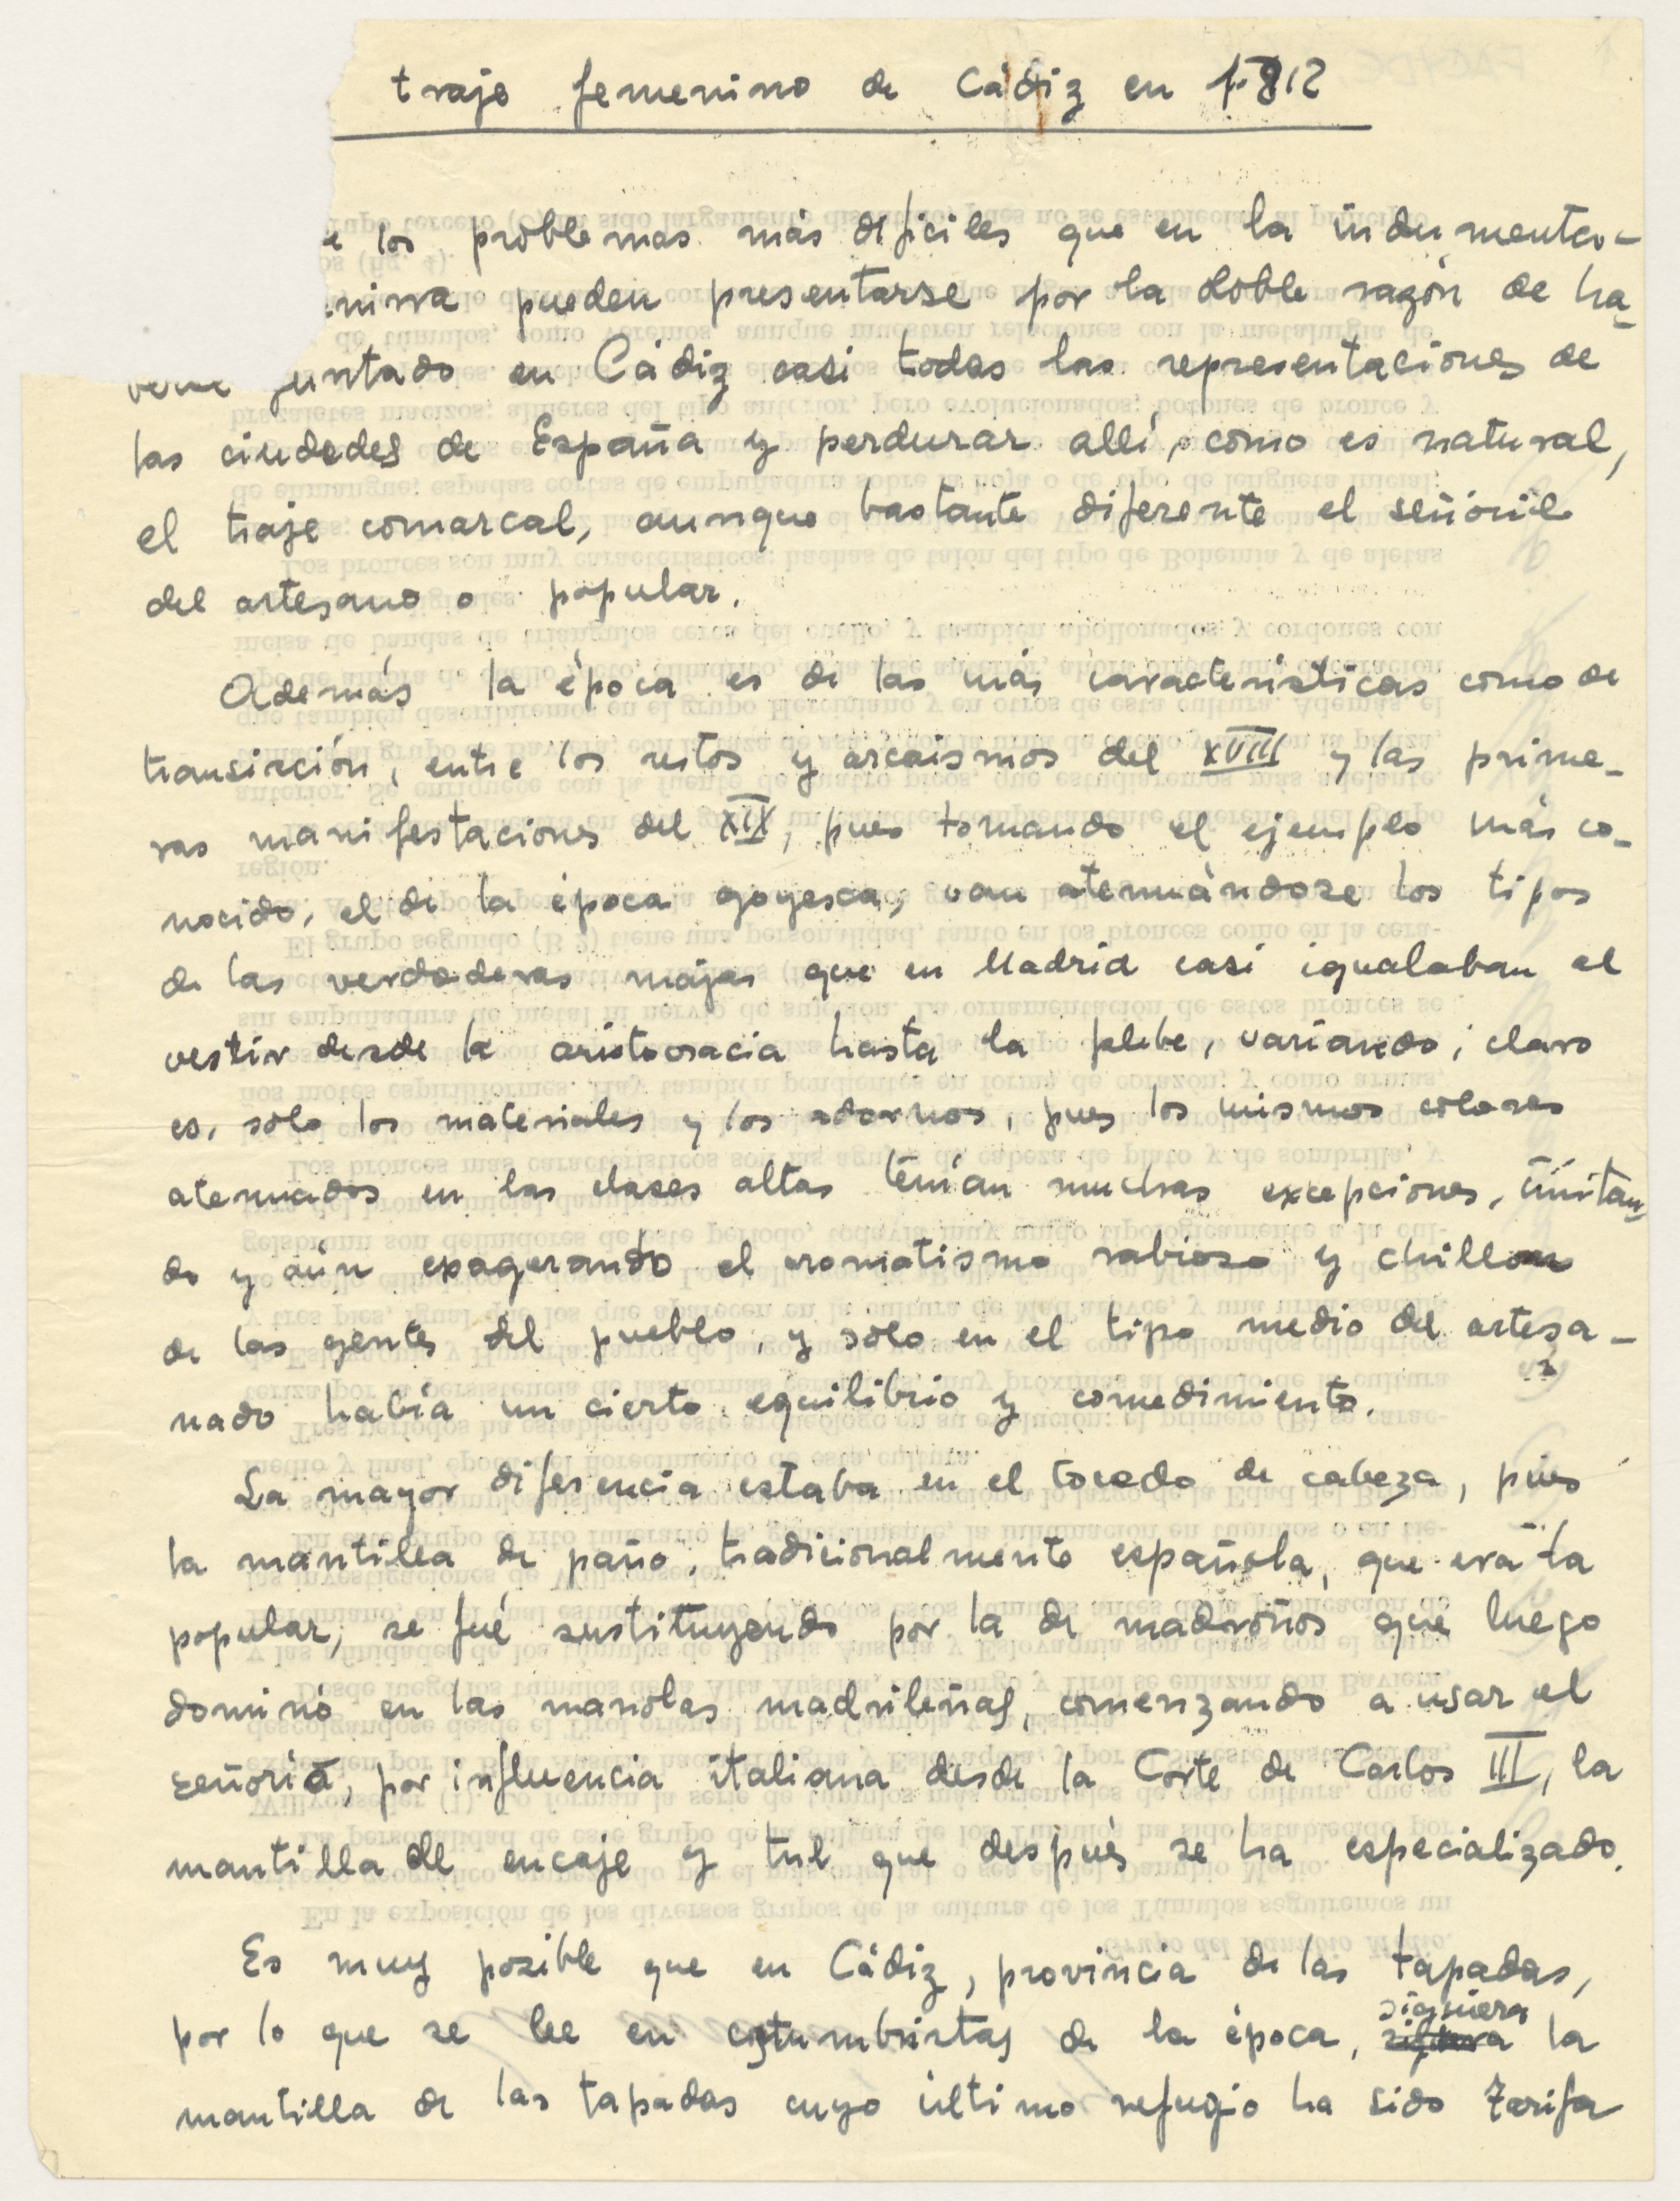 traje femenino de Cádiz en 1812
e los problemas más difíciles que en la indumenta-
enina pueden presentarse por la doble razón de ha-
berse juntado en Cádiz casi todas las representaciones de
las ciudades de España y perdurar allí, como es natural,
el traje comarcal, aunque bastante diferente el señoril
del artesano o popular.
Además la época es de las más características como de
transición, entre los restos y arcaismos del XVIII y las prime-
ras manifestaciones del XIX, pues tomando el ejemplo más co-
nocido, el de la época goyesca, van atenuándose los tipos
de las verdaderas majas que en Madrid casi igualaban el
vestir desde la aristocracia hasta la plebe, variando, claro
es, solo los materiales y los adornos, pues los mismos colores
atenuados en las clases altas tenían muchas excepciones, imitan-
do y aún exagerando el cromatismo rabioso y chillon
de las gentes del pueblo, y solo en el tipo medio del artesa-
nado había un cierto equilibrio y comedimiento.
La mayor diferencia estaba en el tocado de cabeza, pues
la mantilla de paño, tradicionalmente española, que era la
popular, se fué sustituyendo por la de madroños que luego
dominó en las manolas madrileñas, comenzando a usar el
señorío, por influencia italiana desde la Corte de Carlos III, la
mantilla de encaje y tul que después se ha especializado.
Es muy posible que en Cádiz, provincia de las tapadas,
por lo que se lee en costumbristas de la época, siguiera la
mantilla de las tapadas cuyo último refugio ha sido Tarifa